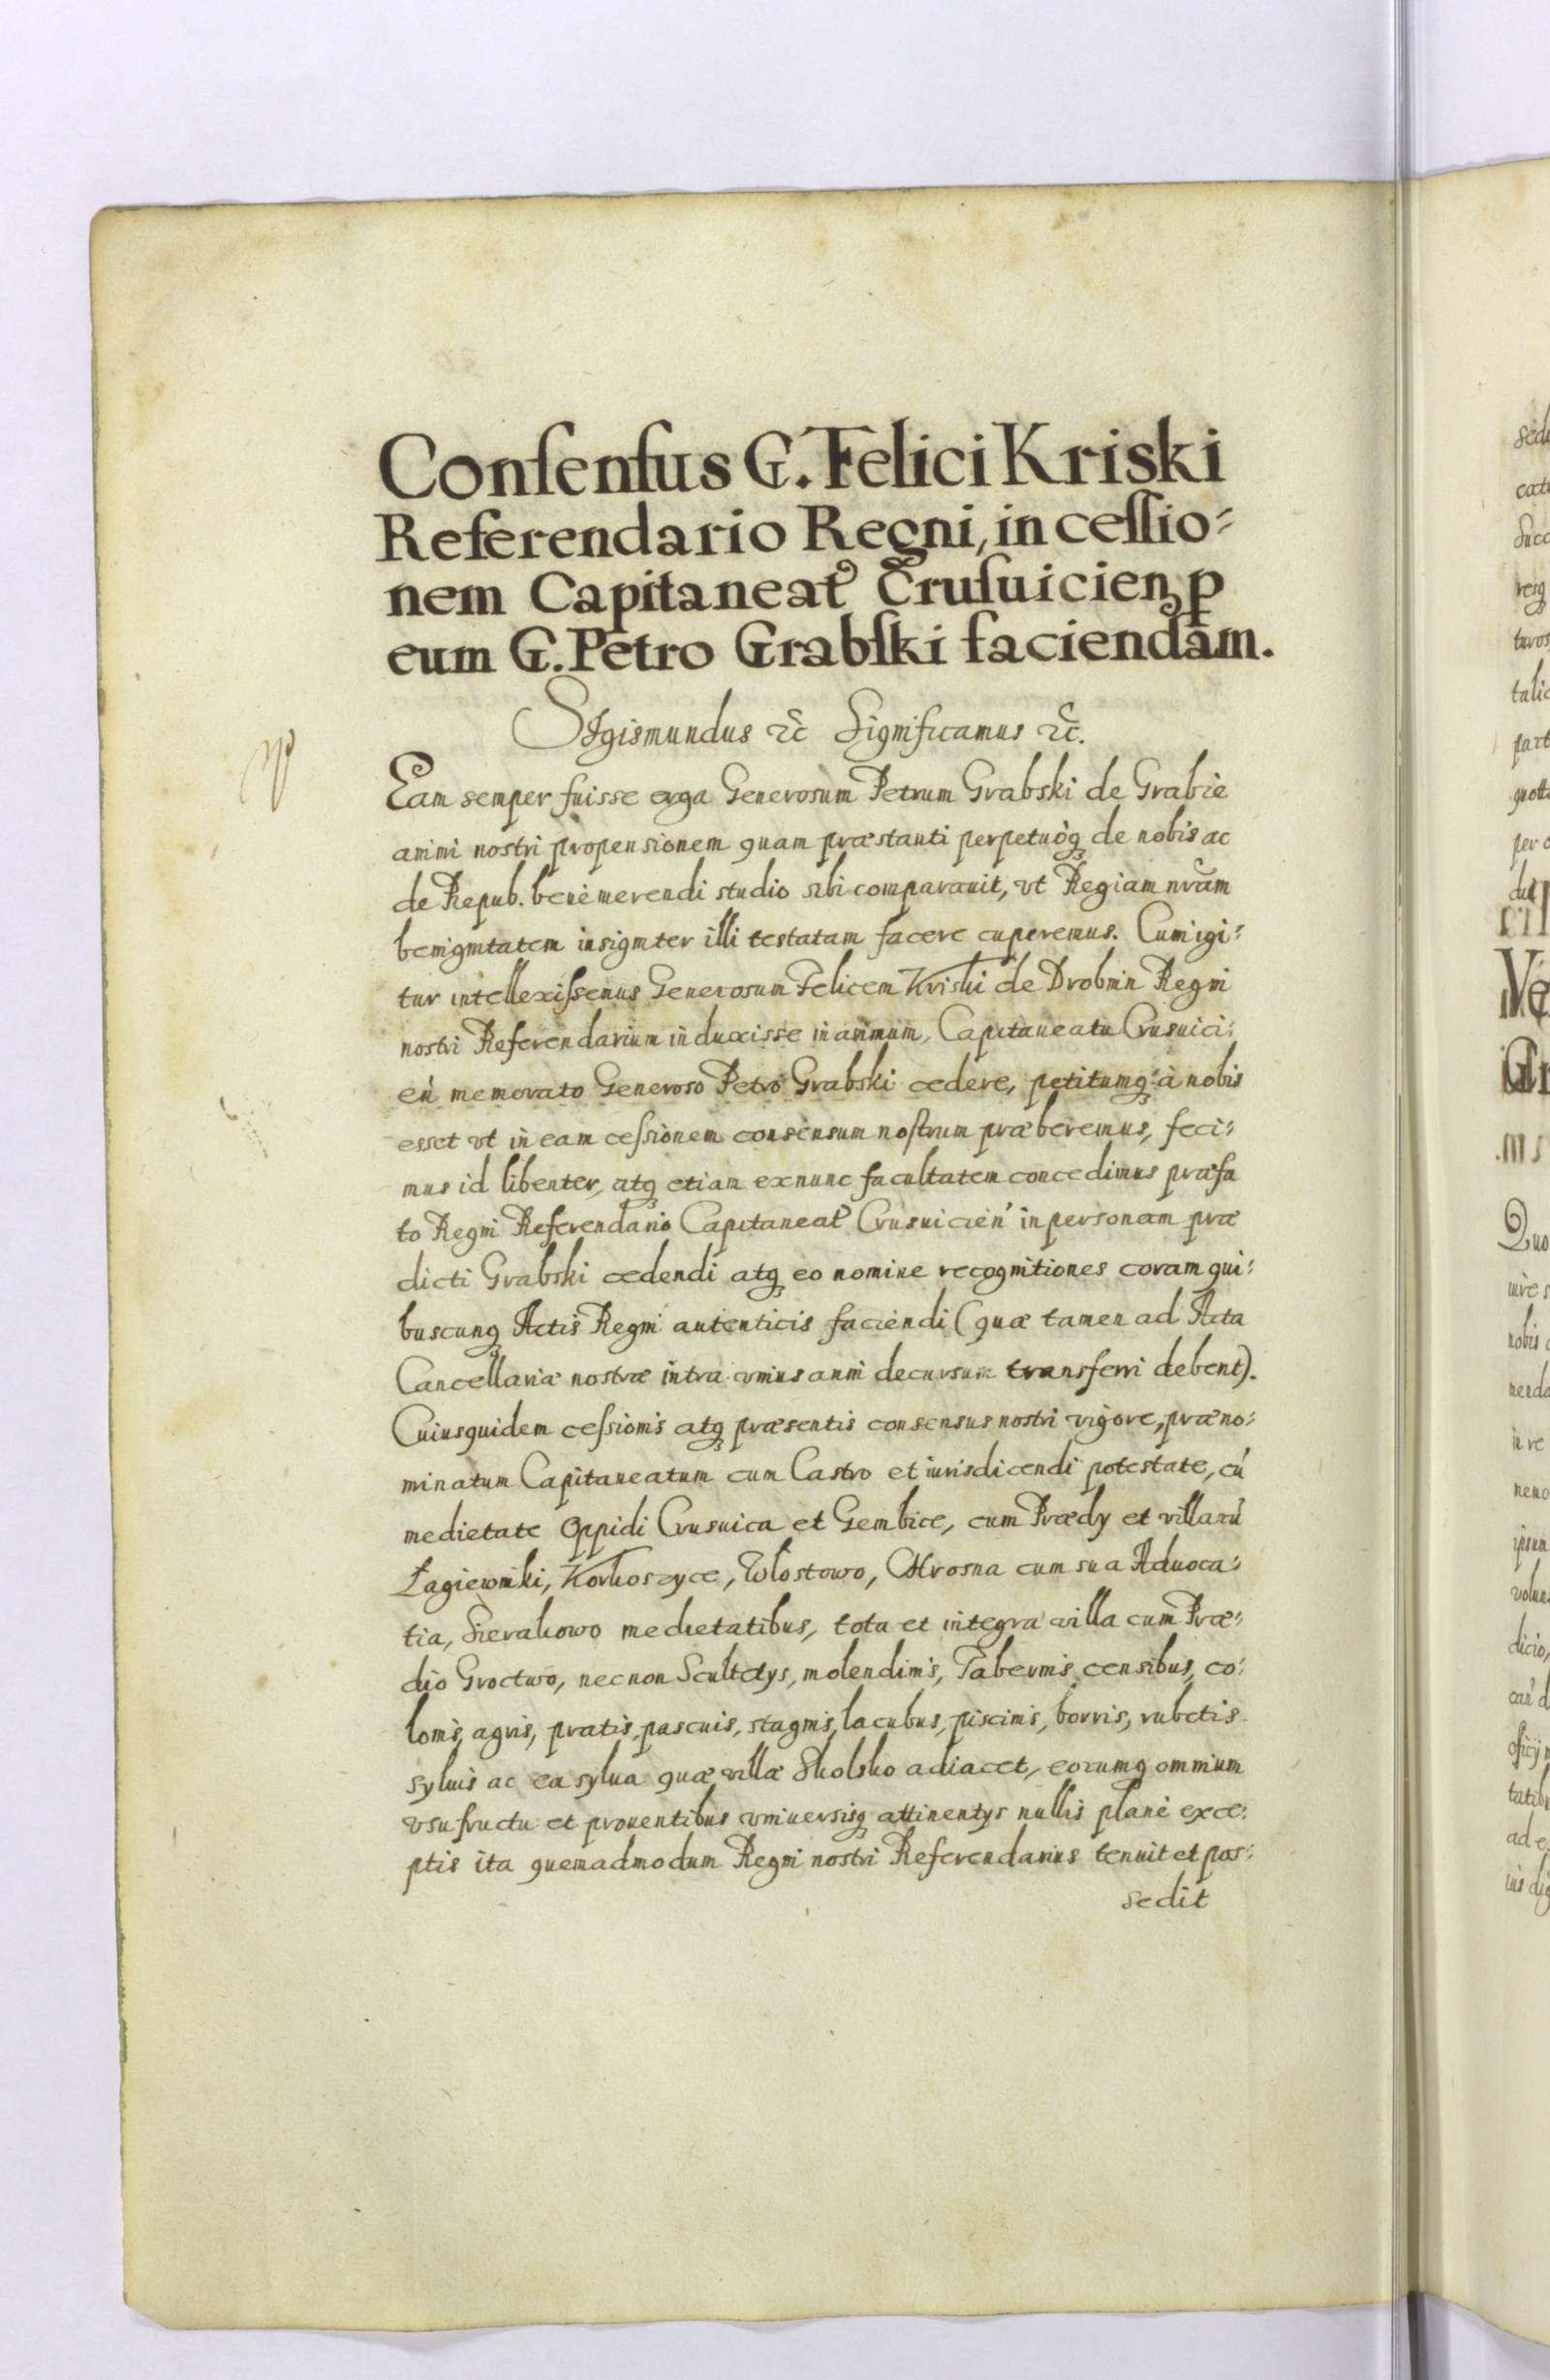 Conſenſus G. Felici Kriski
Referendario Regni, in ceſſio⸗
nem Capitaneatꝰ Cruſuicien̄ ꝑ
eum G. Petro Grabſki faciendam.
SIgismundus ⁊c̃ Significamus ⁊c̃.
Eam semper fuisse erga Generosum Petrum Grabski de Grabie
animi nostri propensionem quam præstanti perpetuòq̃ de nobis ac
de Repub. benè merendi studio sibi comparauit, vt Regiam nr̃am
benignitatem insigniter illi testatam facere cuperemus. Cum igi⸗
tur intellexiſsemus Generosum Felicem Kriski de Drobnin Regni
nostri Referendarium induxisse in animum, Capitaneatu Crusuici⸗
eń memorato Generoso Petro Grabski cedere, petitumq̃ à nobis
esset vt in eam ceſsionem consensum noſtrum præberemus, feci⸗
mus id libenter, atq̃ etiam ex nunc facultatem concedimus præfa
to Regni Referendario Capitaneatꝰ Crusuicień in personam præ
dicti Grabski cedendi atq̃ eo nomine recognitiones coram qui⸗
buscunq̃ Actis Regni autenticis faciendi (quæ tamen ad Acta
Cancellariæ nostræ intra vnius anni decursum transferri debent).
Cuiusquidem ceſsionis atq̃ præsentis consensus nostri vigore, præno⸗
minatum Capitaneatum cum Castro et iurisdicendi potestate, cú
medietate Oppidi Crusuica et Gembice, cum Prædy et villarú
Łagiewniki, Korkoszyce, Włostowo, Chrosna cum sua Aduoca⸗
tia, Sierakowo medietatibus, tota et integra villa cum Præ⸗
dio Groctwo, necnon Scultetys, molendinis, Tabernis, censibus, co⸗
lonis, agris, pratis, pascuis, stagnis, lacubus, piscinis, borris, rubetis
syluis ac ea sylua quæ villæ Skolsko adiacet, eorumq̃ omnium
vsufructu et prouentibus vniuersisq̃ attinentys nullis planè exce⸗
ptis ita quemadmodum Regni nostri Referendarius tenuit et pos⸗
sedit